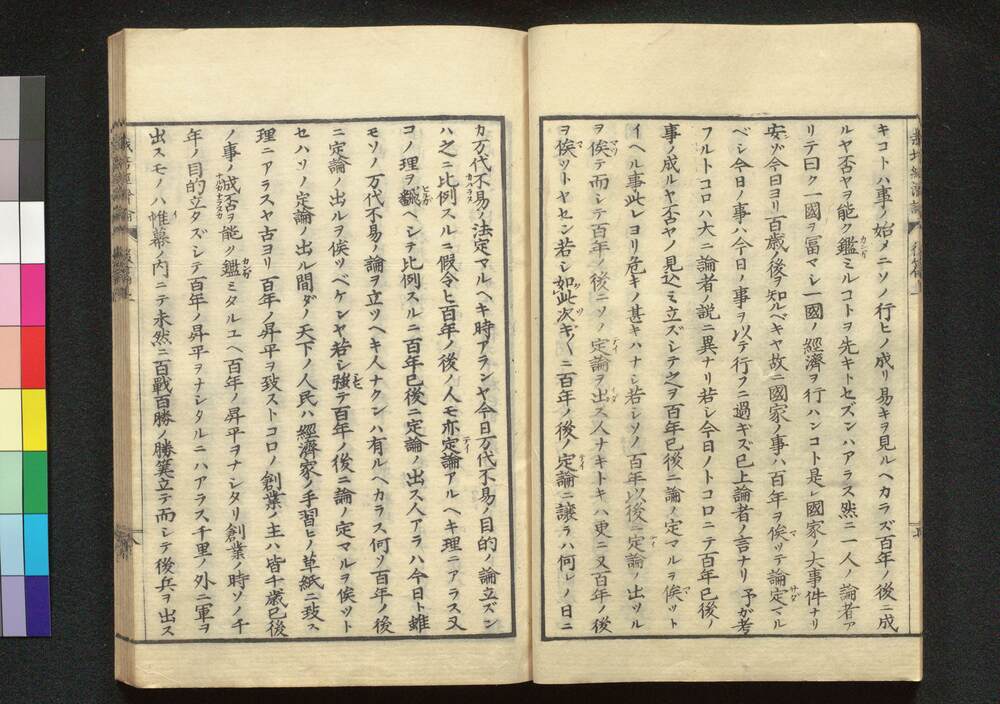 キコトハ事ノ始メニソノ行ヒノ成リ易キヲ見ルヘカラズ百年ノ後ニ成
ルヤ否ヤヲ能ク鑑ミルコトヲ先キトセズンハアラス然ニ一人ノ論者ア
リテ曰ク一國ヲ冨マシ一國ノ經濟ヲ行ハンコト是レ國家ノ大事件ナリ
安ゾ今日ヨリ百歳ノ後ヲ知ルベキヤ故ニ國家ノ事ハ百年ヲ俟ツテ論定マル
ベシ今日ノ事ハ今日ノ事ヲ以テ行フニ過ギズ已上論者ノ言ナリ予ガ考
フルトコロハ大ニ論者ノ説ニ異ナリ若シ今日ノトコロニテ百年已後ノ
事ノ成ルヤ否ヤノ見込ミ立ズシテ之ヲ百年已後ニ論ノ定マルヲ俟ツト
イヘル事此レヨリ危キノ甚キハナシ若シソノ百年以後ニ定論ノ出ツル
ヲ俟テ而シテ百年ノ後ニソノ定論ヲ出ス人ナキトキハ更ニ又百年ノ後
ヲ俟ツトヤセン若シ如此次ギ〱ニ百年ノ後ノ定論ニ譲ラハ何レノ日ニ
カ万代不易ノ法定マルヘキ時アランヤ今日万代不易ノ目的ノ論立ズン
ハ之ニ比例スルニ假令ヒ百年ノ後ノ人モ亦定論アルヘキ理ニアラス又
コノ理ヲ飜ヘシテ比例スルニ百年已後ニ定論ノ出ス人アラハ今日ト雖
モソノ万代不易ノ論ヲ立ツヘキ人ナクンハ有ルヘカラス何ソ百年ノ後
ニ定論ノ出ルヲ俟ツベケンヤ若シ強テ百年ノ後ニ論ノ定マルヲ俟ツト
セハソノ定論ノ出ル間ダノ天下ノ人民ハ經濟家ノ手習ヒノ草紙ニ玻ス
理ニアラスヤ古ヨリ百年ノ昇平ヲ致ストコロノ創業ノ主ハ皆千歳已後
ノ事ノ成否ヲ能ク鑑ミタルユヘ百年ノ昇平ヲナシタリ創業ノ時ソノ千
年ノ目的立タズシテ百年ノ昇平ヲナシタルニハアラス千里ノ外ニ軍ヲ
出スモノハ帷幕ノ内ニテ未然ニ百戰百勝ノ勝筭立テ而シテ後兵ヲ出ス